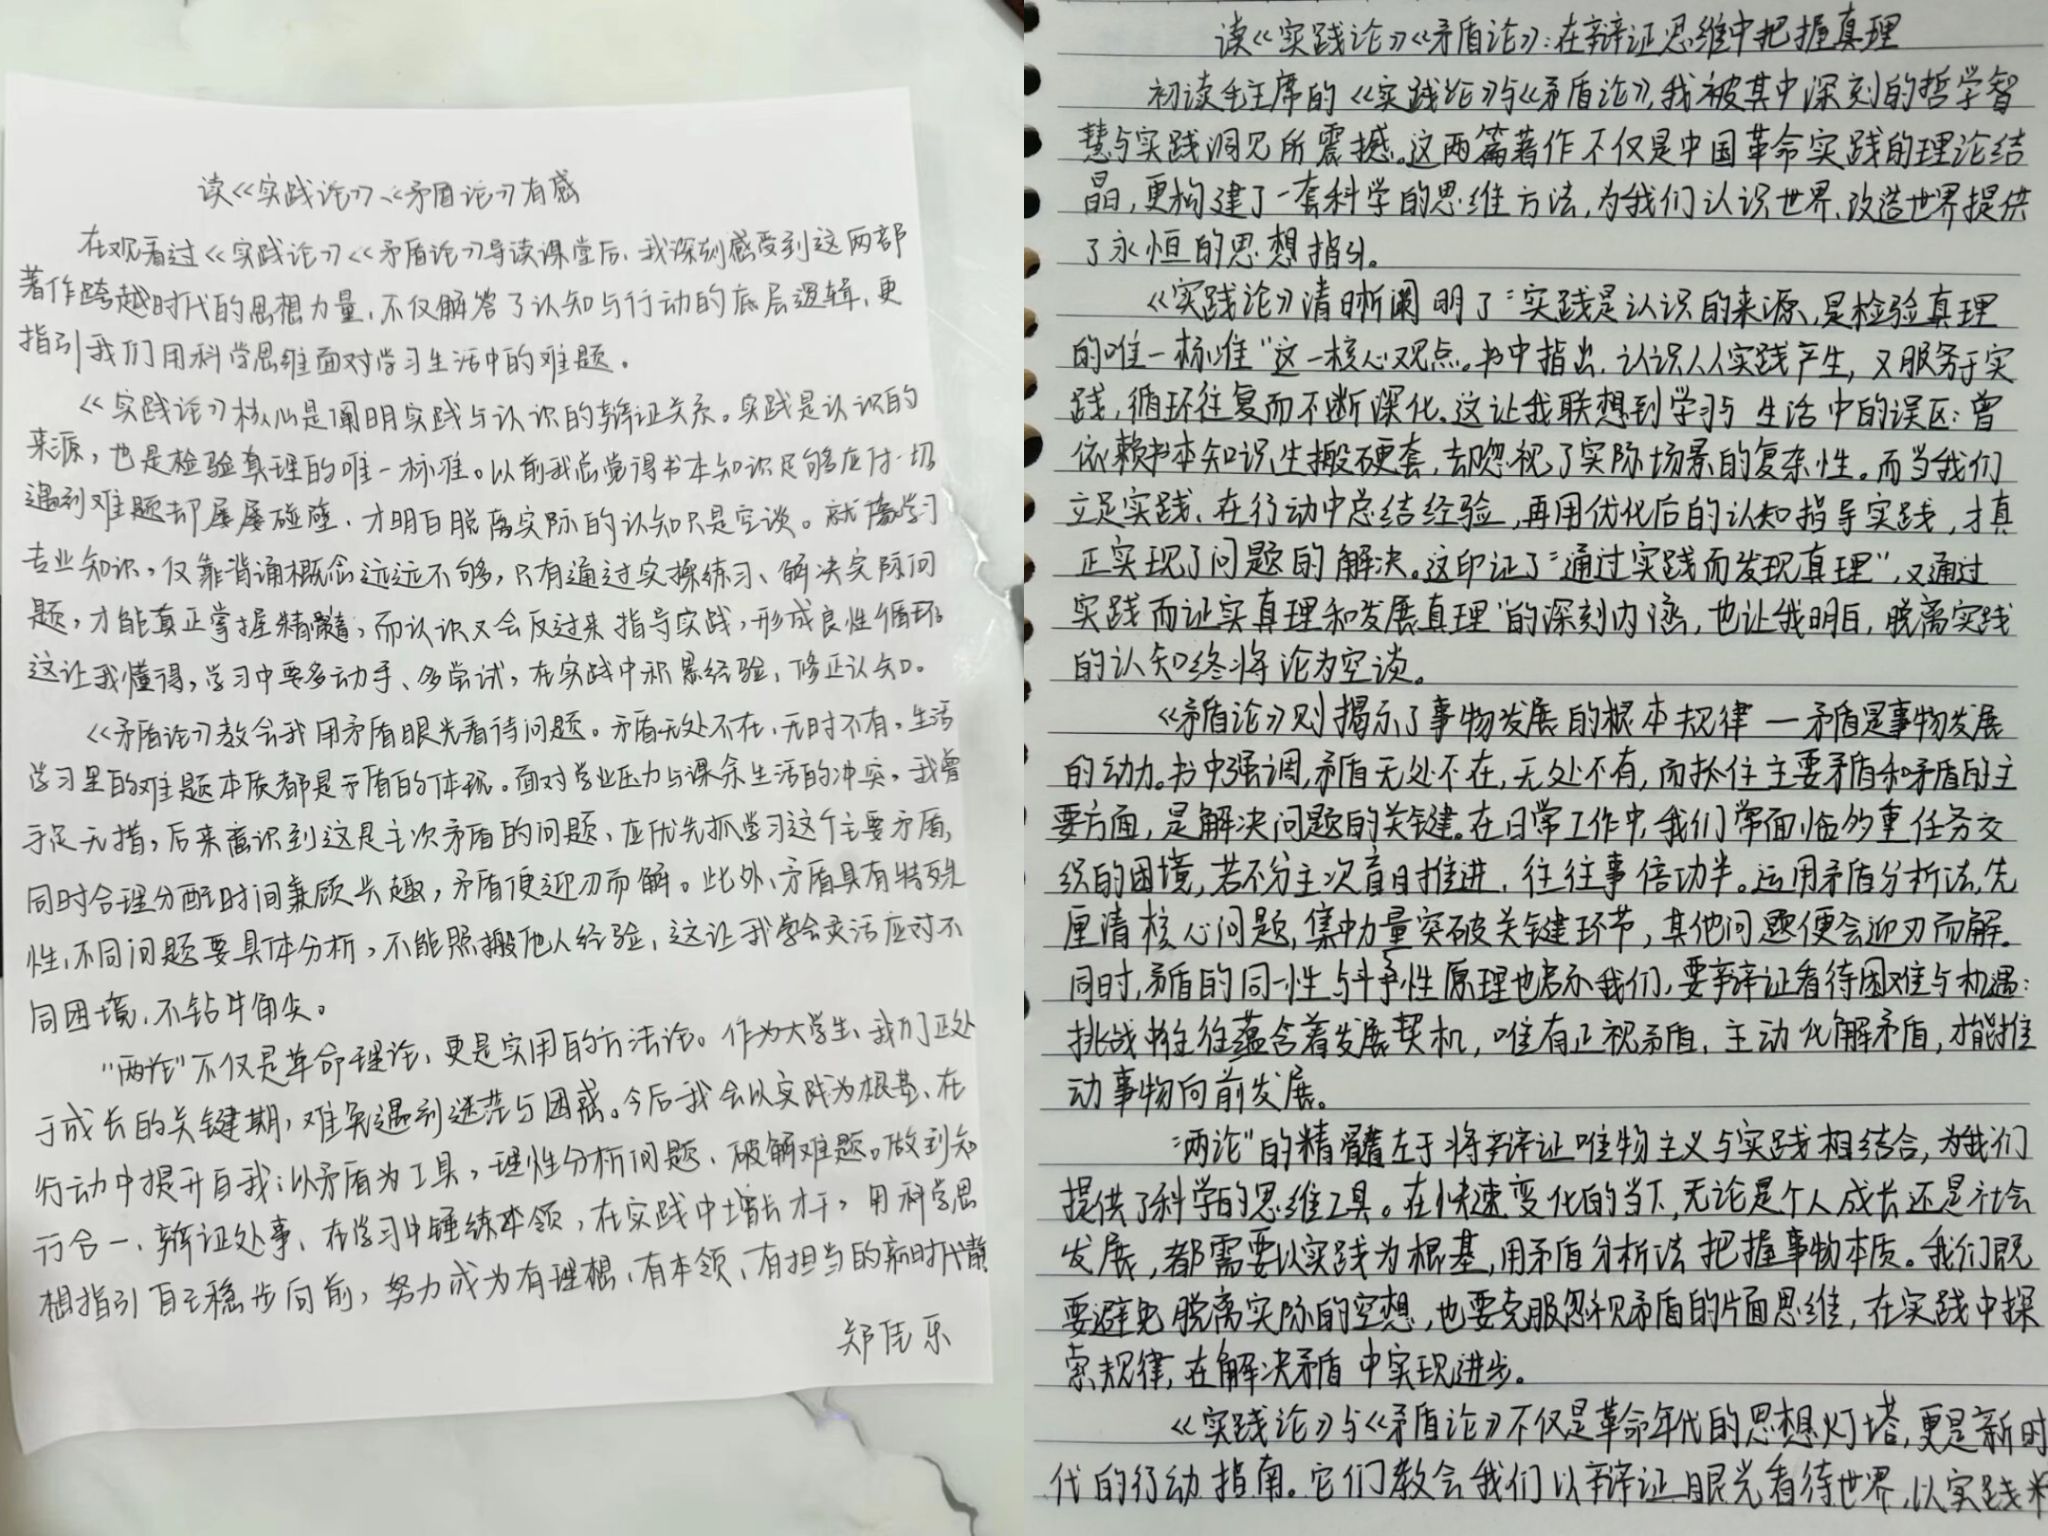 读《实践论》、《矛盾论》有感
在观看过《实践论》《矛盾论》导读课堂后,我深刻感受到这两部
著作跨越时代的思想力量,不仅解答了认知与行动的底层逻辑,更
指引我们用科学思维面对学习生活中的难题。
《实践论》核心是阐明实践与认识的辩证关系。实践是认识的
来源,也是检验真理的唯一标准。以前我总觉得书本知识足够应付一切
遇到难题却屡屡碰壁,才明白脱离实际的认知只是空谈。就像学习
专业知识,仅靠背诵概念远远不够,只有通过实操练习、解决实际问
题,才能真正掌握精髓;而认识又会反过来指导实践,形成良性循环
这让我懂得,学习中要多动手、多尝试,在实践中积累经验,修正认知。
《矛盾论》教会我用矛盾眼光看待问题。矛盾无处不在,无时不有,生活
学习里的难题本质都是矛盾的体现。面对学业压力与课余生活的冲突,我曾
手足无措,后来意识到这是主次矛盾的问题,应优先抓学习这个主要矛盾,
同时合理分配时间兼顾兴趣,矛盾便迎刃而解。此外,矛盾具有特殊
性,不同问题要具体分析,不能照搬他人经验,这让我学会灵活应对不
同困境,不钻牛角尖。
“两论”不仅是革命理论,更是实用的方法论。作为大学生,我们正处
于成长的关键期,难免遇到迷茫与困惑。今后我会以实践为根基,在
行动中提升自我;以矛盾为工具,理性分析问题、破解难题。做到知
行合一、辩证处事,在学习中锤练本领,在实践中增长才干,用科学思
想指引自己稳步向前,努力成为有理想、有本领、有担当的新时代青
郑佳乐
读《实践论》《矛盾论》:在辩证思维中把握真理
初读毛主席的《实践论》与《矛盾论》,我被其中深刻的哲学智
慧与实践洞见所震撼。这两篇著作不仅是中国革命实践的理论结
晶,更构建了一套科学的思维方法,为我们认识世界、改造世界提供
了永恒的思想指引。
《实践论》清晰阐明了“实践是认识的来源,是检验真理
的唯一标准”这一核心观点。书中指出,认识从实践产生,又服务于实
践,循环往复而不断深化。这让我联想到学习与生活中的误区:曾
依赖书本知识,生搬硬套,却忽视了实际场景的复杂性。而当我们
立足实践、在行动中总结经验,再用优化后的认知指导实践,才真
正实现了问题的解决。这印证了“通过实践而发现真理”,又通过
实践而证实真理和发展真理”的深刻内涵,也让我明白,脱离实践
的认知终将沦为空谈。
《矛盾论》则揭示了事物发展的根本规律—矛盾是事物发展
的动力。书中强调,矛盾无处不在,无处不有,而抓住主要矛盾和矛盾的主
要方面,是解决问题的关键。在日常工作中,我们常面临多重任务交
织的困境,若不分主次盲目推进,往往事倍功半。运用矛盾分析法,先
厘清核心问题,集中力量突破关键环节,其他问题便会迎刃而解。
同时,矛盾的同一性与斗争性原理也启示我们,要辩证看待困难与机遇:
挑战中往往蕴含着发展契机,唯有正视矛盾,主动化解矛盾,才能推
动事物向前发展。
“两论”的精髓在于将辩证唯物主义与实践相结合,为我们
提供了科学的思维工具。在快速变化的当下,无论是个人成长还是社会
发展,都需要以实践为根基,用矛盾分析法把握事物本质。我们既
要避免脱离实际的空想,也要克服忽视矛盾的片面思维,在实践中探
索规律,在解决矛盾中实现进步。
《实践论》与《矛盾论》不仅是革命年代的思想灯塔,更是新时
代的行动指南。它们教会我们以辩证眼光看待世界,以实践